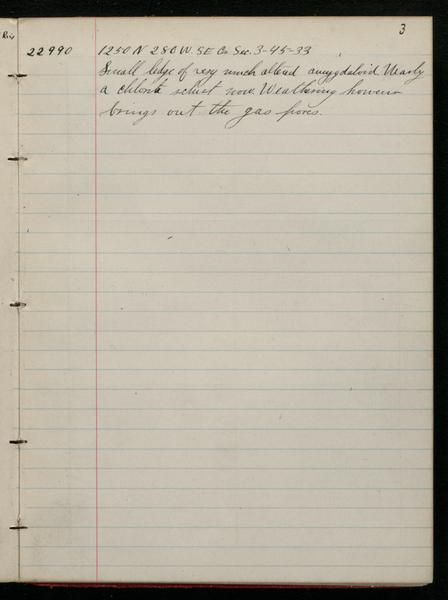 3
22990 1250 N 280 W. SE Co Sec. 3-45-33
Small ledge of very much altered amygdaloid. Nearly
a chlorite schist now. Weathering however
brings out the gas pores.